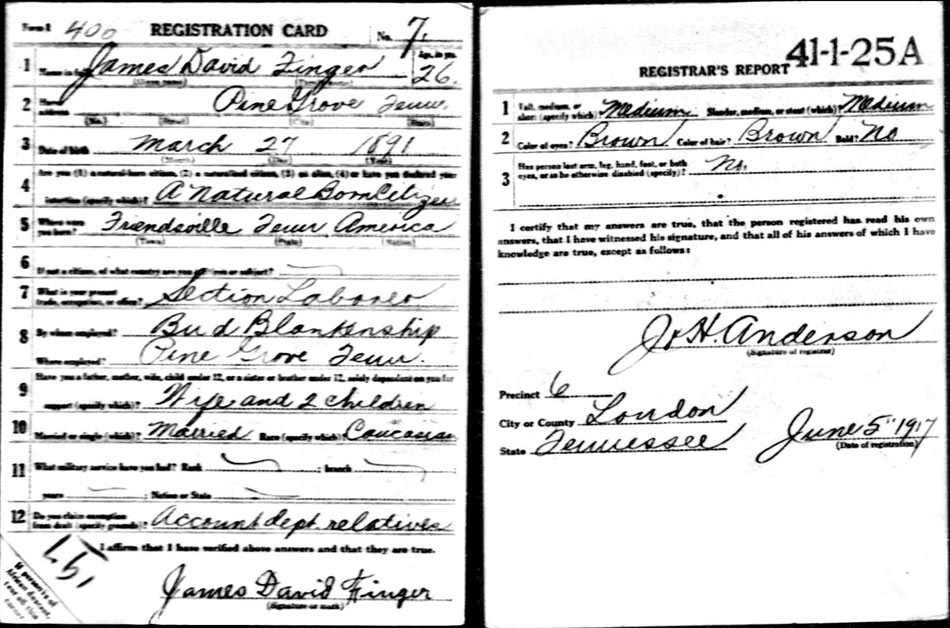 Form 1 400 REGISTRATION CARD No. 7
1 Name in full James David Finger Age, in yrs. 26
(Given name) (Family name)
2 Home address Pine Grove Tenn.
(No.) (Street) (City) (State)
3 Date of birth March 27 1891
(Month) (Day) (Year)
4 Are you (1) a natural-born citizen, (2) a naturalized citizen, (3) an alien, (4) or have you declared your
intention (specify which)? A Natural Born Citizen
5 Where were you born? Friendsville Tenn America
(Town) (State) (Nation)
6 If not a citizen, of what country are you a citizen or subject?
7 What is your present trade, occupation, or office? Section Laborer
8 By whom employed? Bud Blankenship
Where employed? Pine Grove Tenn.
9 Have you a father, mother, wife, child under 12, or a sister or brother under 12, solely dependent on you for
support (specify which)? Wife and 2 children
10 Married or single (which)? Married Race (specify which)? Caucasian
11 What military service have you had? Rank ; branch
years ; Nation or State
12 Do you claim exemption from draft (specify grounds)? Account dept relatives
I affirm that I have verified above answers and that they are true.
James David Finger
(Signature or mark)
If person is of African descent, tear off this corner
41-1-25A
REGISTRAR'S REPORT
1 Tall, medium, or short (specify which)? Medium Slender, medium, or stout (which)? Medium
2 Color of eyes? Brown Color of hair? Brown Bald? No
3 Has person lost arm, leg, hand, foot, or both eyes, or is he otherwise disabled (specify)? No.
I certify that my answers are true, that the person registered has read his own
answers, that I have witnessed his signature, and that all of his answers of which I have
knowledge are true, except as follows:
J. H. Anderson
(Signature of registrar)
Precinct 6
City or County Loudon
State Tennessee
June 5" 1917
(Date of registration)